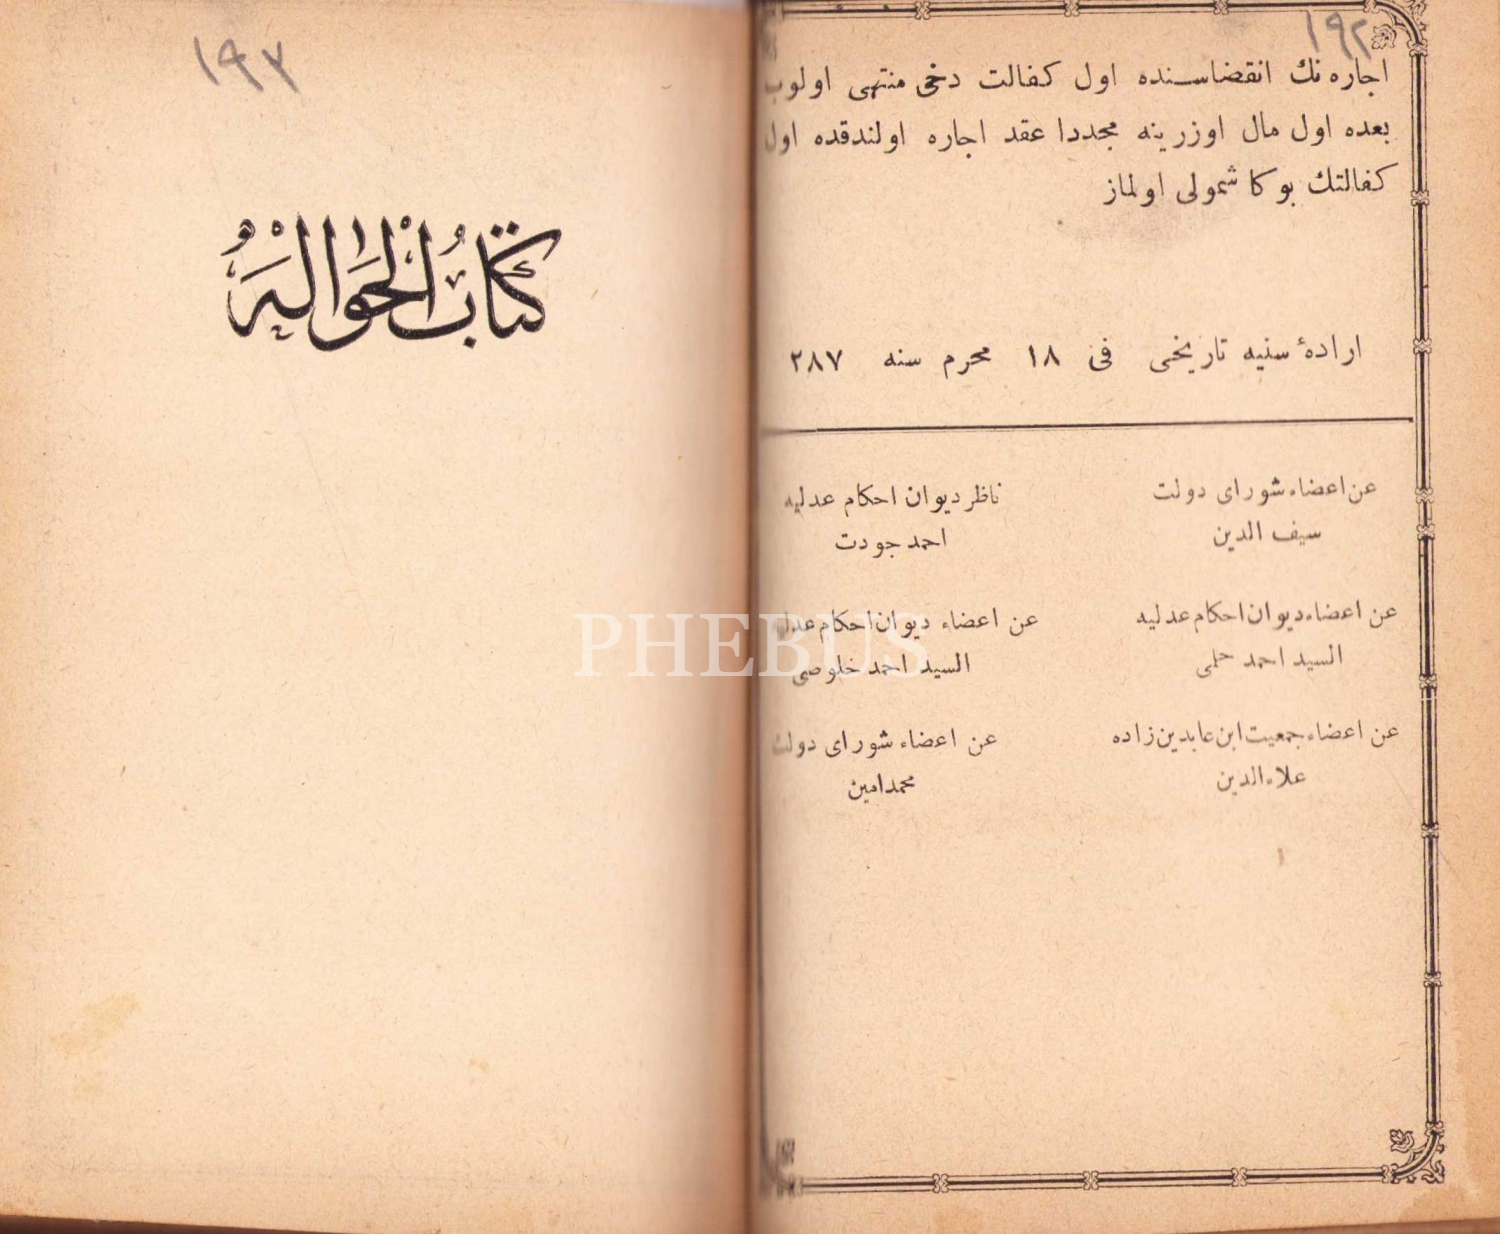 ١٩٢
اجاره نك انقضاسنده اول كفالت دخی منتهی اولوب
بعده اول مال اوزرينه مجددا عقد اجاره اولندقده اول
كفالتك بوكا شمولی اولماز
ارادهٔ سنيه تاريخی فی ١٨ محرم سنه ٢٨٧
عن اعضاء شورای دولت
سيف الدين
ناظر ديوان احكام عدليه
احمد جودت
عن اعضاء ديوان احكام عدليه
السيد احمد حلمی
عن اعضاء ديوان احكام عدليه
السيد احمد خلوصی
عن اعضاء جمعيت ابن عابدين زاده
علاء الدين
عن اعضاء شورای دولت
محمد امين
١٩٣
كِتَابُ الْحَوَالَهْ
PHEBUS